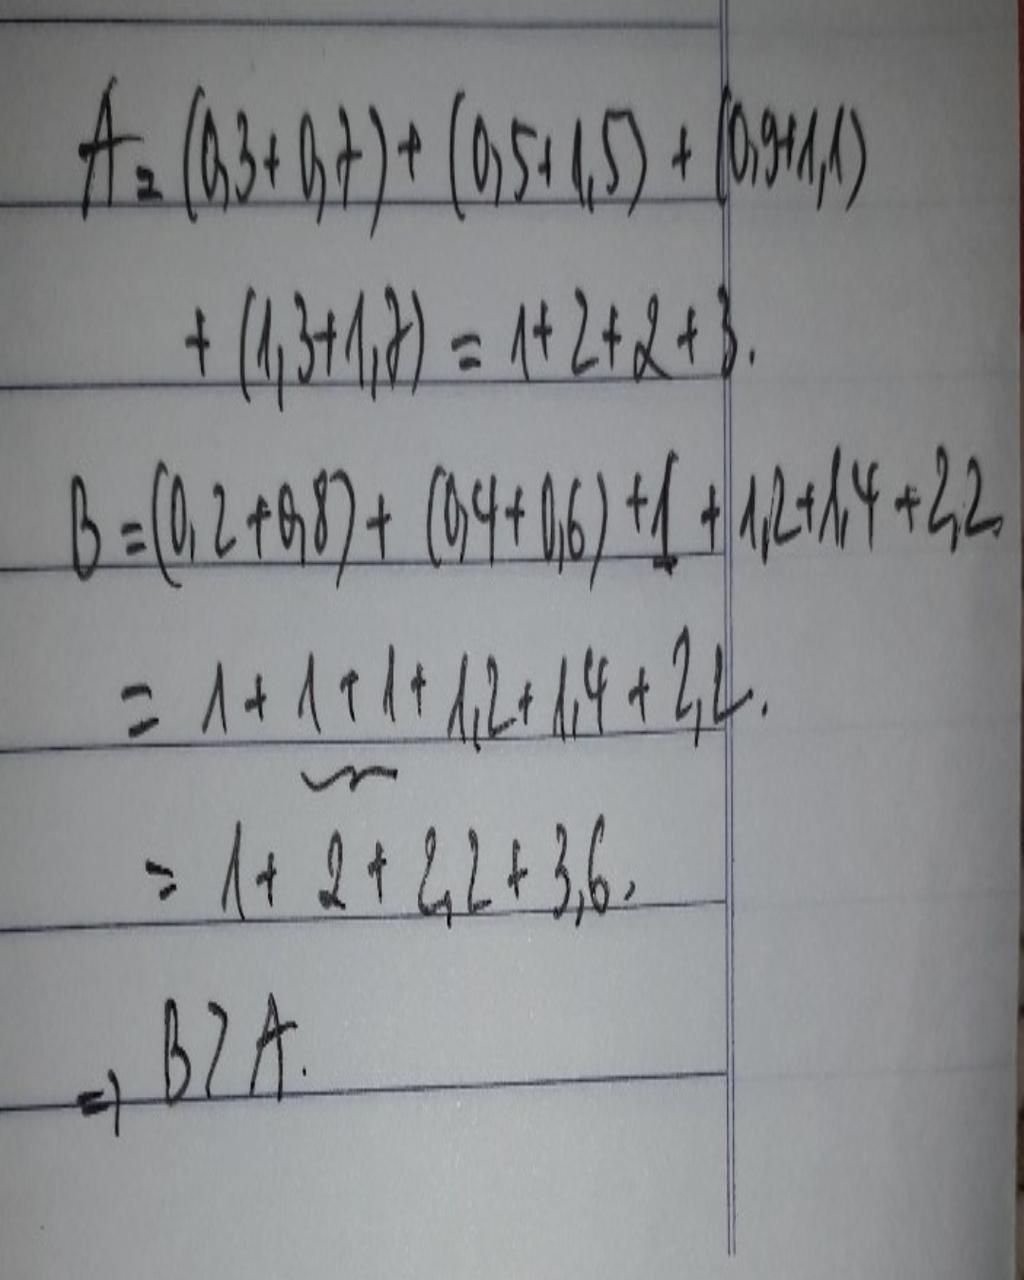 A = (0,3 + 0,7) + (0,5 + 1,5) + (0,9 + 1,1)
+ (1,3 + 1,7) = 1 + 2 + 2 + 3.
B = (0,2 + 0,8) + (0,4 + 0,6) + 1 + 1,2 + 1,4 + 2,2.
= 1 + 1 + 1 + 1,2 + 1,4 + 2,2.
= 1 + 2 + 2,2 + 3,6.
⇒ B > A.